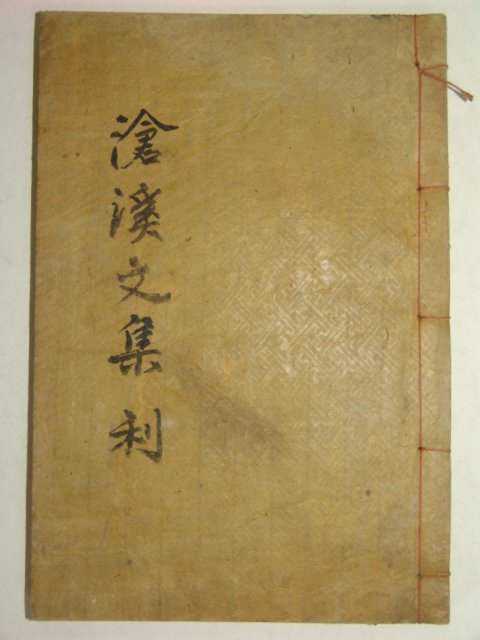 滄溪文集 利